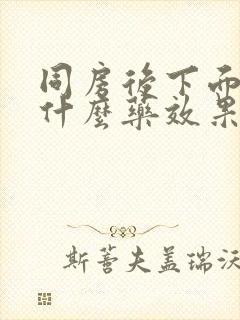 同房後下面
什麼藥效果
斯菩夫盖瑞沃